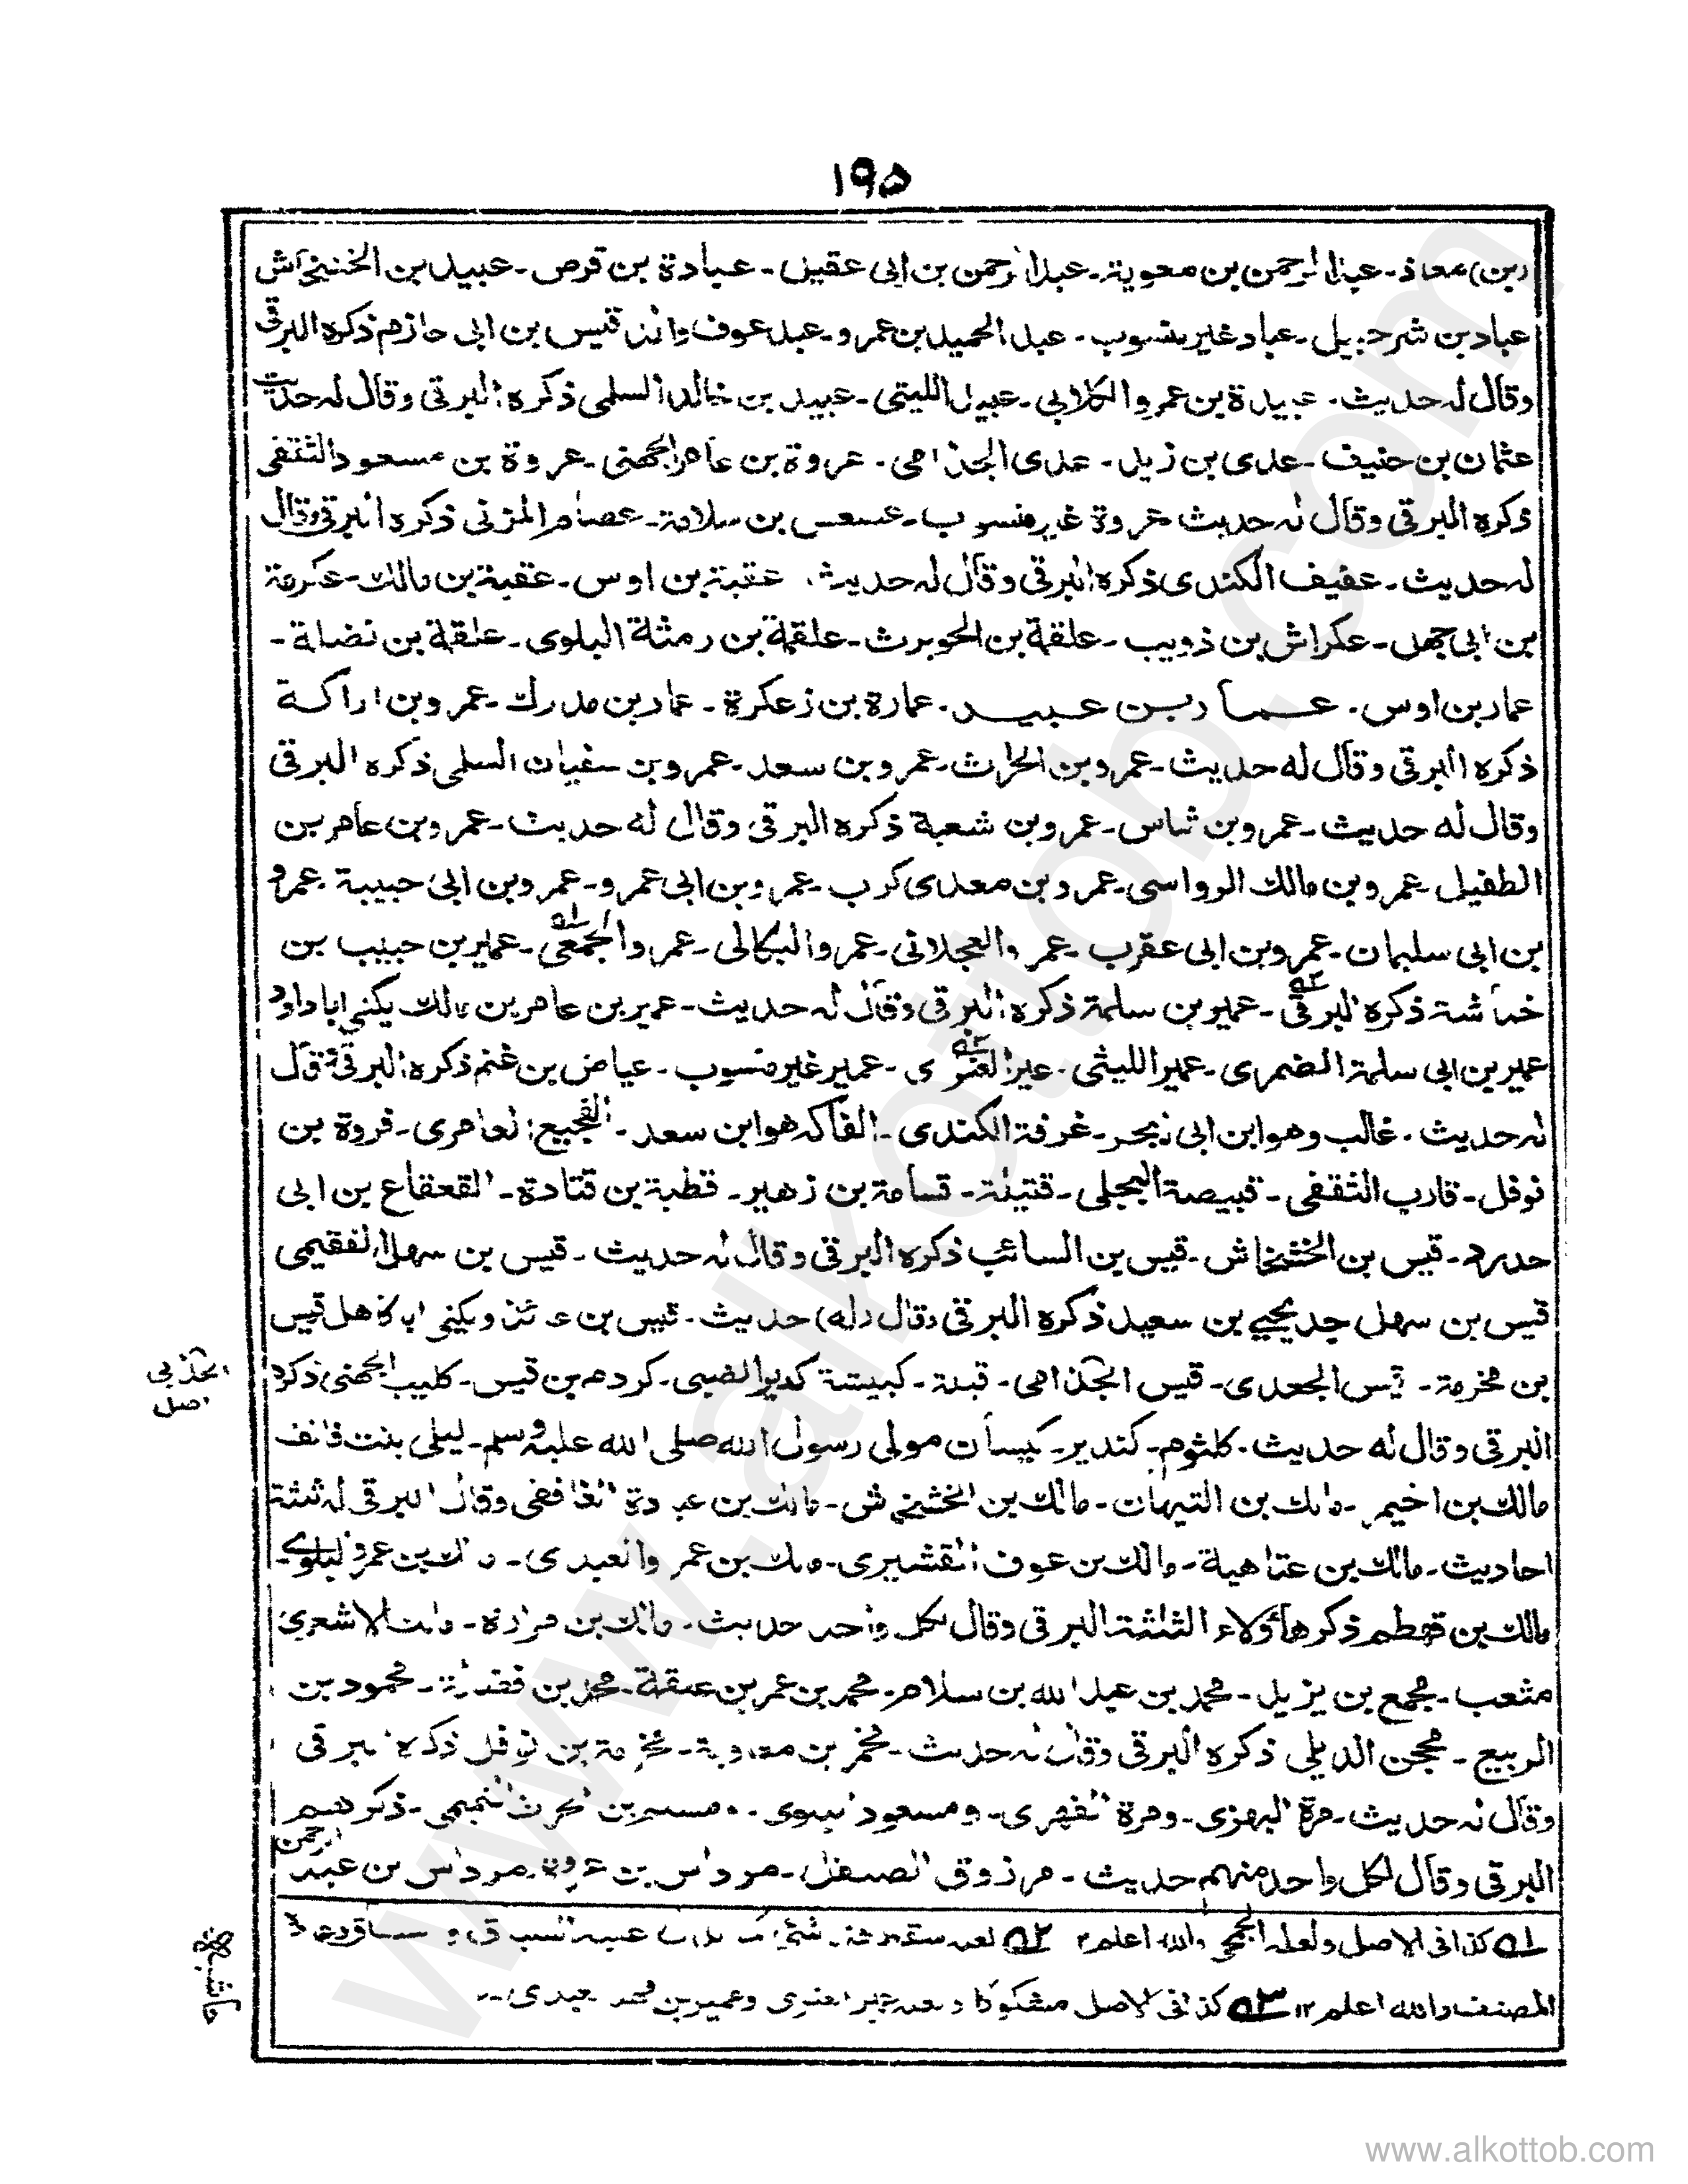 ١٩٥
(بن) معاذ - عبد الرحمن بن معوية - عبد الرحمن بن ابى عقيل - عبادة بن قرص - عبيد بن الخشخاش
عباد بن شرحبيل - عباد غير منسوب - عبد الحميد بن عمرو - عبد عوف والد قيس بن ابى حازم ذكره البرقى
وقال له حديث - عبيدة بن عمرو الكلابى - عبيد الليثى - عبيد بن خالد السلمى ذكره البرقى وقال له حديث
عثمان بن حنيف - عدى بن زيد - عدى الجذامى - عروة بن عامر الجهنى - عروة بن مسعود الثقفى
ذكره البرقى وقال له حديث عروة غير منسوب - عسعس بن سلامة - عصام المزنى ذكره البرقى وقال
له حديث - عفيف الكندى ذكره البرقى وقال له حديث - عقبة بن اوس - عقبة بن مالك - عكرمة
بن ابى جهل - عكراش بن ذويب - علقمة بن الحويرث - علقمة بن رمثة البلوى - علقمة بن نضلة -
عمار بن اوس - عمار بن عبيد - عمارة بن زعكرة - عمار بن مدرك - عمرو بن اراكة
ذكره البرقى وقال له حديث - عمرو بن الحارث - عمرو بن سعد - عمرو بن سفيان السلمى ذكره البرقى
وقال له حديث - عمرو بن شاس - عمرو بن شعبة ذكره البرقى وقال له حديث - عمرو بن عامر بن
الطفيل - عمرو بن مالك الرواسى - عمرو بن معدى كرب - عمرو بن ابى عمرو - عمرو بن ابى حبيبة - عمرو
بن ابى سليمان - عمرو بن ابى عقرب - عمرو العجلانى - عمرو البكالى - عمرو الجمعى ١ - عمير بن حبيب بن
خماشة ذكره البرقى ٢ - عمير بن سلمة ذكره البرقى وقال له حديث - عمير بن عامر بن مالك يكنى ابا داود
عمير بن ابى سلمة الضمرى - عمير الليثى - عمير العنزى ٣ - عمير غير منسوب - عياض بن غنم ذكره البرقى وقال
له حديث - غالب وهو ابن ابى نجر - غرفة الكندى - الفاكه هو ابن سعد - الفجيع العامرى - فروة بن
نوفل - قارب الثقفى - قبيصة البجلى - قتيلة - قسامة بن زهير - قطبة بن قتادة - القعقاع بن ابى
حدرد - قيس بن الخشخاش - قيس بن السائب ذكره البرقى وقال له حديث - قيس بن سهل الفقيمى
قيس بن سهل جد يحيى بن سعيد ذكره البرقى وقال (له) حديث - قيس بن عائذ ويكنى ابا كاهل قيس
بن مخرمة - قيس الجعدى - قيس الجذامى - قبلة - كبيشة كدير الضبى - كردم بن قيس - كليب الجهنى ذكره
البرقى وقال له حديث - كلثوم - كندير - كيسان مولى رسول الله صلى الله عليه وسلم - ليلى بنت قانف
مالك بن اخيمر - مالك بن التيهان - مالك بن الخشخاش - مالك بن عبادة الغافقى وقال البرقى له ثلثة
احاديث - مالك بن عتاهية - مالك بن عوف القشيرى - مالك بن عمرو العبدى - مالك بن عمرو البلوى -
مالك بن قهطم ذكر هاؤلاء الثلثة البرقى وقال لكل واحد حديث - مالك بن مرارة - مالك الاشعرى
مثعب - مجمع بن يزيد - محمد بن عبد الله بن سلام - محمد بن عمر بن علقمة - محمد بن فضالة - محمود بن
الربيع - محجن الديلى ذكره البرقى وقال له حديث - مخمر بن معاوية - مخرمة بن نوفل ذكره البرقى
وقال له حديث - مرة البهزى - ومرة الفهرى - ومسعود البلوى - ومسلم بن الحرث التميمى - ذكرهم
البرقى وقال لكل واحد منهم حديث - مرزوق الصيقل - مرداس بن عروة - مرداس بن عبد الرحمن
الجذبى
اصل
حاشية
١ كذا فى الاصل ولعله الجمحى والله اعلم ١٢ ٢ لعله سقط
المصنف والله اعلم ١٢ ٣ كذا فى الاصل مشكوكا ولعله عمير العنزى وعمير بن
www.alkottob.com
www.alkottob.com